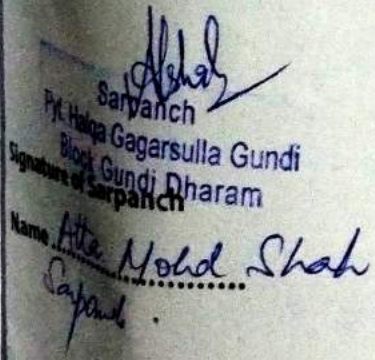 AShah
Sarpanch
Pyt. Halqa Gagarsulla Gundi
Block Gundi Dharam
Signature of Sarpanch
Name Atta Mohd Shah
Sarpanch